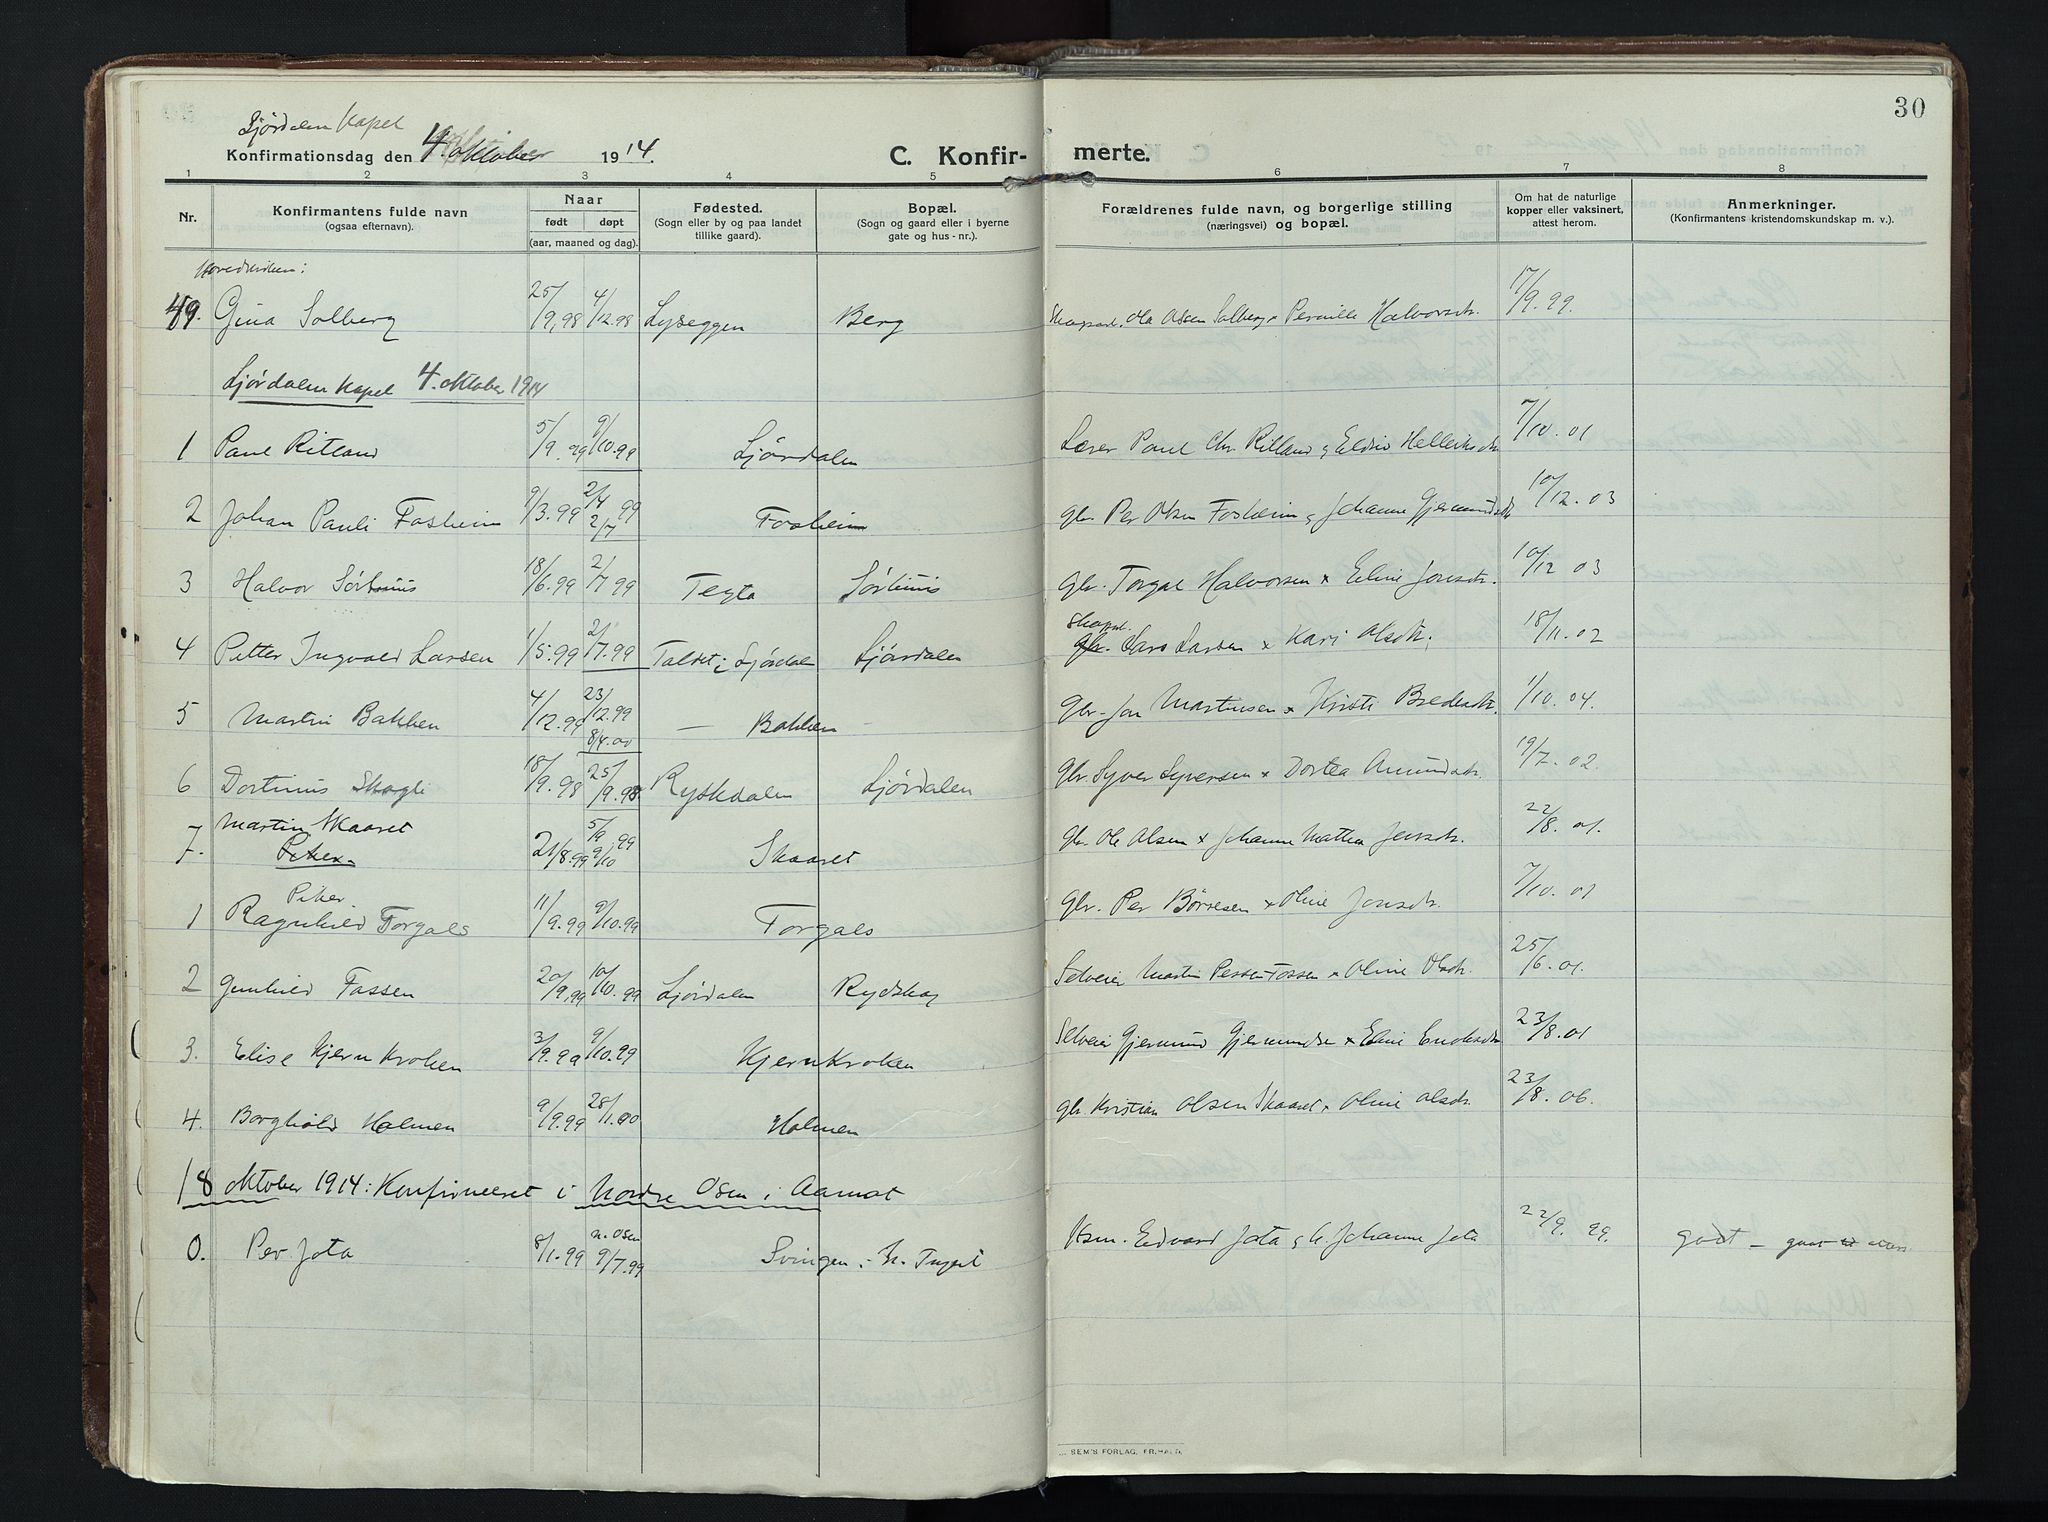 30
Ljørdalen Kapel
Konfirmationsdag den 4. oktober 1914.
C. Konfirmerte.
1 2 3 4 5 6 7 8
Nr.
Konfirmantens fulde navn
(ogsaa efternavn).
Naar
født døpt
(aar, maaned og dag).
Fødested.
(Sogn eller by og paa landet
tillike gaard).
Bopæl.
(Sogn og gaard eller i byerne
gate og hus - nr.).
Forældrenes fulde navn, og borgerlige stilling
(næringsvei) og bopæl.
Om hat de naturlige
kopper eller vaksinert,
attest herom.
Anmerkninger.
(Konfirmantens kristendomskundskap m. v.).
Hovedkirken:
49. Gina Solberg 25/9.98 4/12.98 Lyseggen Berg Ola Olsen Solberg x Pernille Halvorsdt. 17/9.99.
Ljørdalen Kapel 4. oktober 1914
1 Paul Ritland 5/9.99 9/10.99 Ljørdalen Lærer Paul Chr. Ritland & Eldrid Helleiksdt. 7/10.01
2 Johan Pauli Fosheim 9/3.99 2/4 99 2/7 Fosheim Gbr. Per Olsen Fosheim & Johanne Gjermundsdt 10/12.03
3 Halvor Sørhuus 18/6.99 2/7 99 Tegta Sørhuus Gbr. Torgal Halvorsen x Eline Jonsdt. 10/12 03
4 Petter Ingvald Larsen 1/5.99 2/7.99 Taldet i Ljørdalen Ljørdalen Skogarb. Gbr. Lars Larsen x Kari Olsdt. 18/11.02
5 Martin Bakken 4/12.99 23/12.99 8/4.00 — Bakken Gbr. Jon Martinsen x Kristi Bredesdt. 1/10.04.
6 Dortinus Skogli 18/9.98 25/9.98 Ryskdalen Ljørdalen Gbr. Syver Syversen x Dortea Amundsdt. 19/7.02.
7. Martin Skaaret 21/8.99 5/9.99 9/10 Skaaret Gbr. Ole Olsen x Johanne Mathea Jensdt. 22/8.01.
Piker
Piker.
1 Ragnhild Torgals 11/9.99 9/10.99 Torgals Gbr. Per Børresen x Oline Jonsdt. 7/10.01
2 Gunhild Fossen 20/9.99 10/10.99 Ljørdalen Rydskog Selveier Martin Persen Fossen x Oline Olsdt. 25/6.01.
3. Elise Kjernkroken 3/9.99 9/10.99 Kjernkroken Selveier Gjermund Gjermundsen x Eline Eriksdt 23/8.01
4. Borghild Holmen 9/9.99 28/1.00 Holmen Gbr. Kristian Olsen Skaaret x Oline Olsdt. 23/8.06.
18 oktober 1914: Konfirmeret i Nordre Osen i Aamot
0. Per Jota 8/1.99 n. Osen 9/7.99 Svingen i n. Trysil Hsm. Edvard Jota & h. Johanne Jota 22/9.99. godt —
SEM'S FORLAG, FR.HALD.